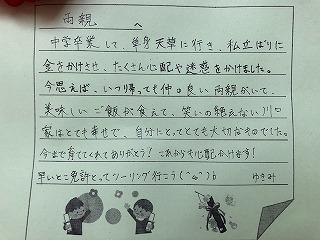 両親 へ
中学卒業して、単身天草に行き、私立ばりに
金をかけさせ、たくさん心配や迷惑をかけました。
今思えば、いつ帰っても仲の良い両親がいて、
美味しいご飯が食えて、笑いの絶えない川口
家はとても幸せで、自分にとってとても大切なものでした。
今まで育ててくれてありがとう！これからも心配かけます！
早いとこ免許とってツーリング行こう(^ω^)b ゆきみ